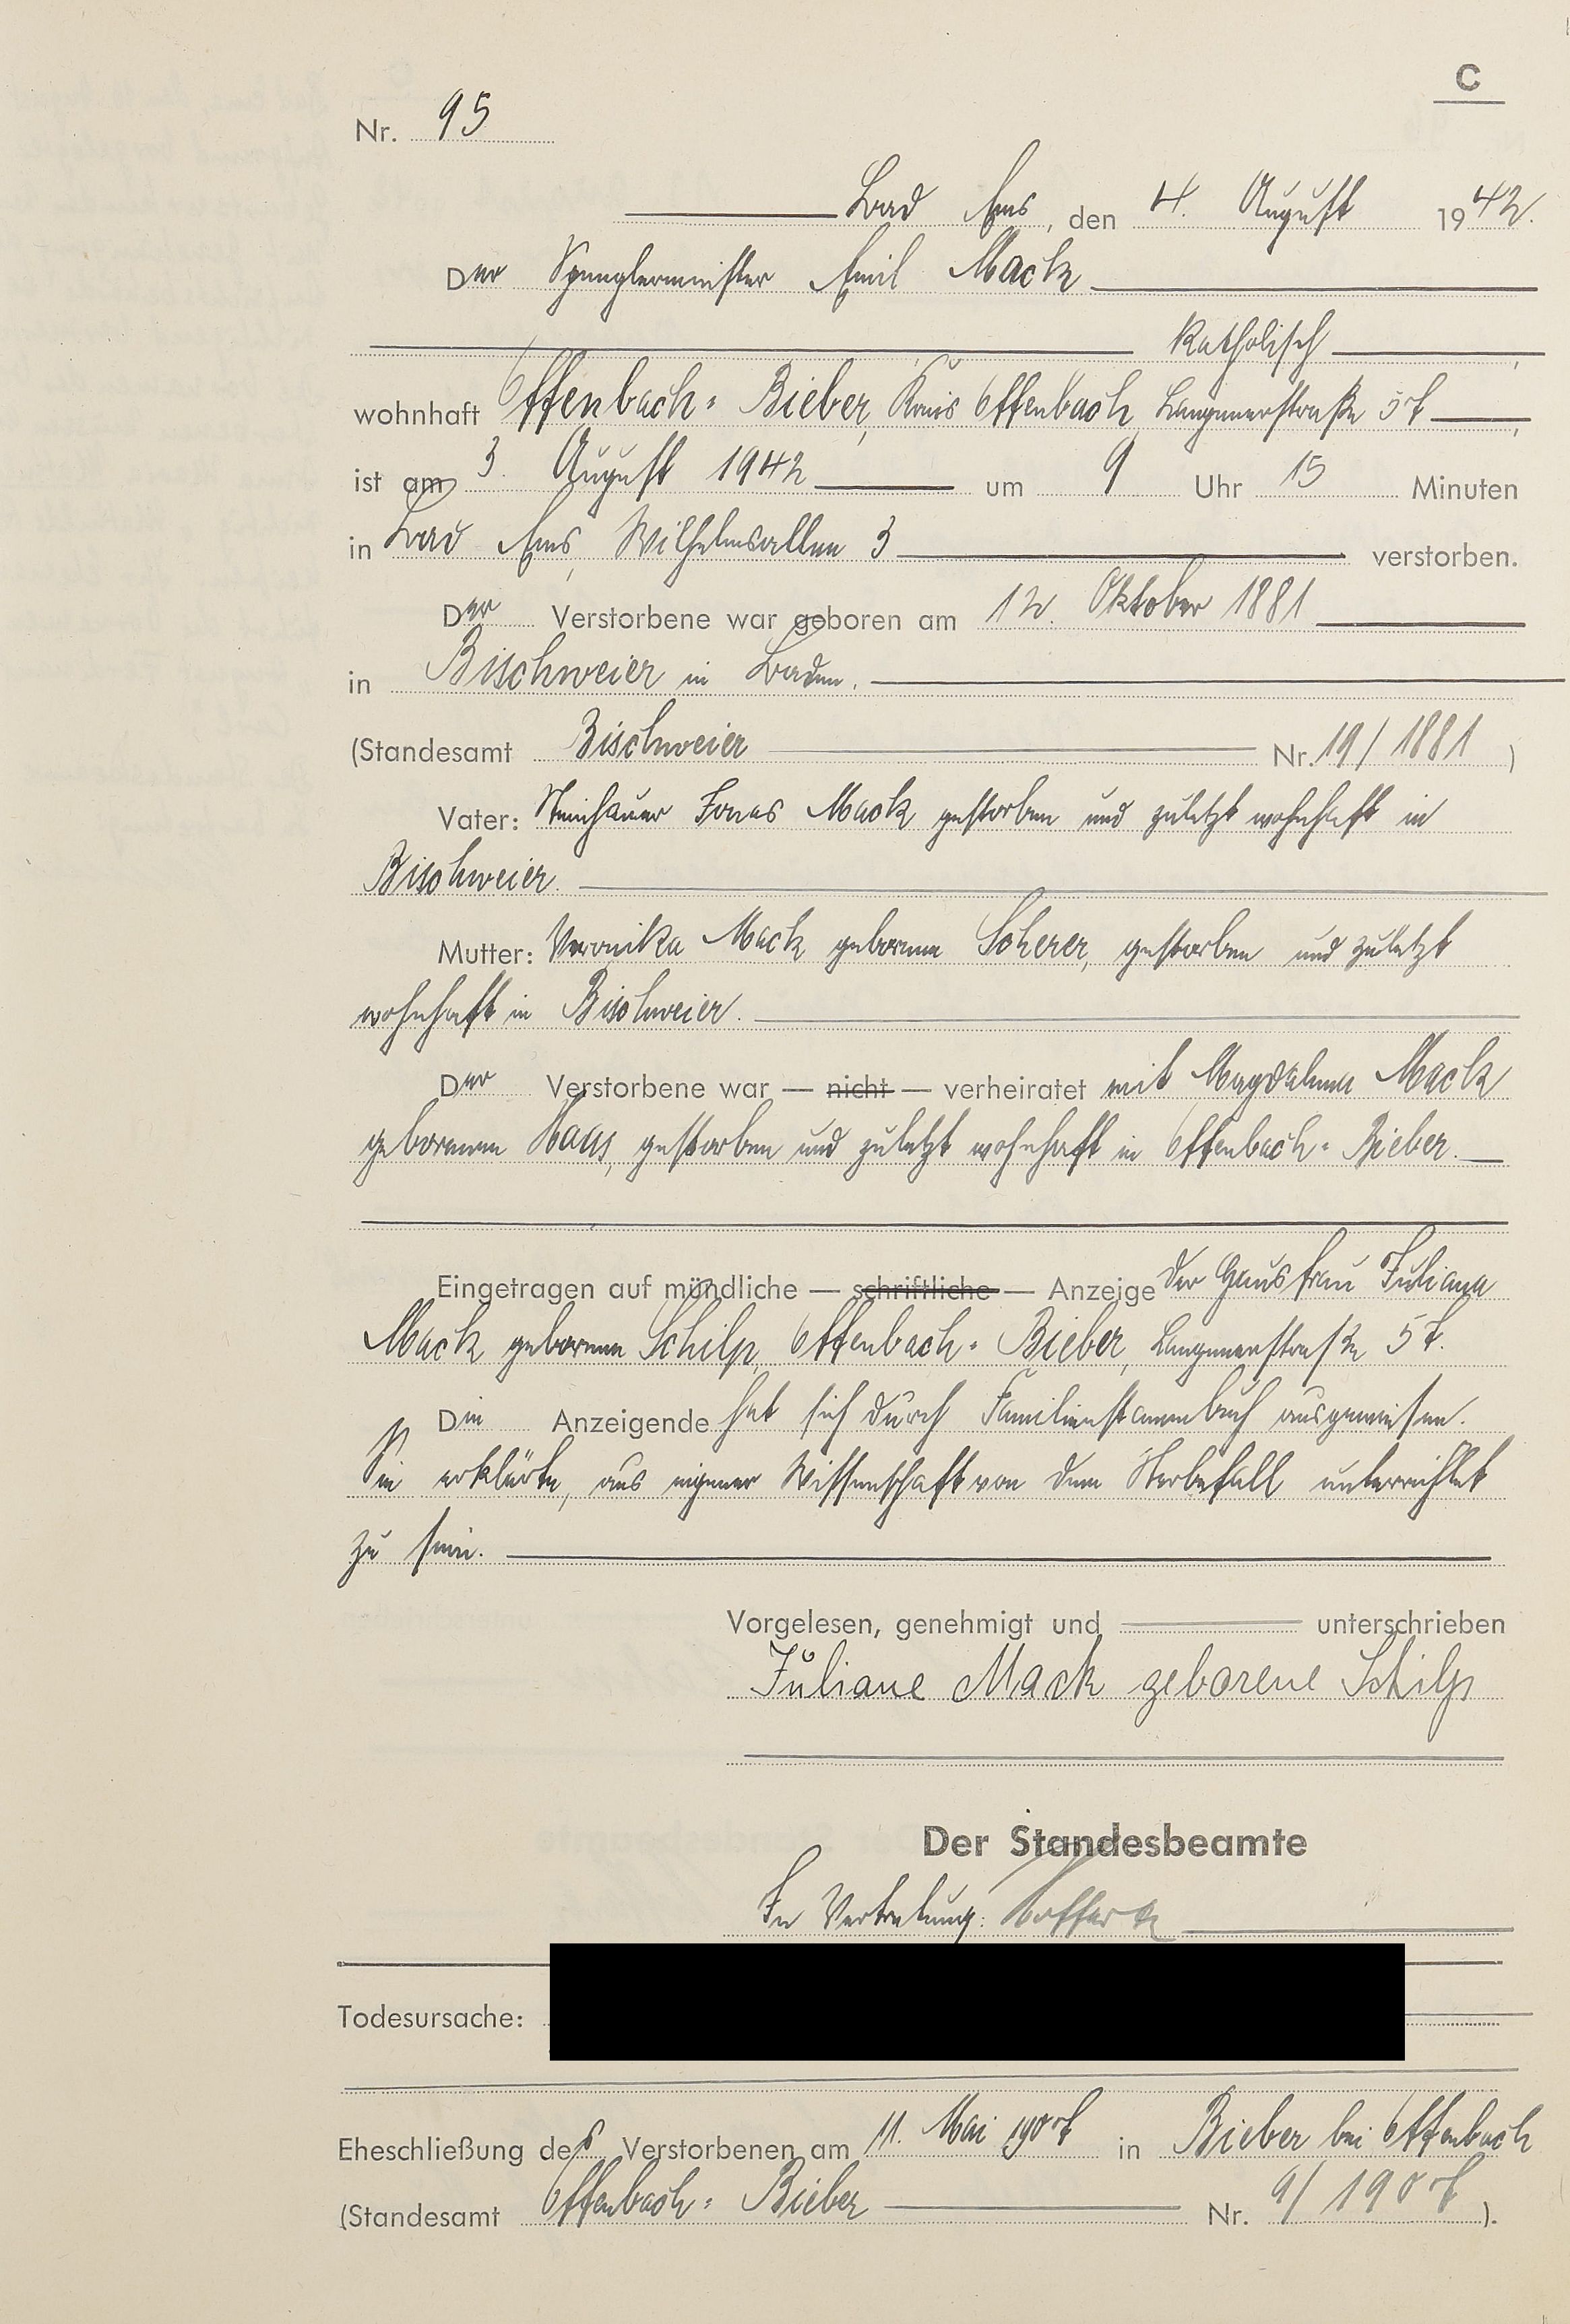 C
Nr. 95
Bad Ems, den 4. August 1942.
Der Spenglermeister Emil Mack
katholisch,
wohnhaft Offenbach-Bieber, Kreis Offenbach, Langenerstraße 57,
ist am 3. August 1942 um 9 Uhr 15 Minuten
in Bad Ems, Wilhelmsallee 3 verstorben.
Der Verstorbene war geboren am 12. Oktober 1881
in Bischweier in Baden.
(Standesamt Bischweier Nr. 19/1881)
Vater: Steinhauer Jonas Mack gestorben und zuletzt wohnhaft in
Bischweier.
Mutter: Veronika Mack geborene Scherer, gestorben und zuletzt
wohnhaft in Bischweier.
Der Verstorbene war — nicht — verheiratet mit Magdalena Mack
geborenen Haas, gestorben und zuletzt wohnhaft in Offenbach-Bieber.
Eingetragen auf mündliche — schriftliche — Anzeige der Hausfrau Juliana
Mack geborene Schilp, Offenbach-Bieber, Langenerstraße 57.
Die Anzeigende hat sich durch Familienstammbuch ausgewiesen.
Sie erklärte, aus eigener Wissenschaft von dem Sterbefall unterrichtet
zu sein.
Vorgelesen, genehmigt und unterschrieben
Juliane Mack geborene Schilp
Der Standesbeamte
In Vertretung:
Todesursache:
Eheschließung des Verstorbenen am 11. Mai 1907 in Bieber bei Offenbach
(Standesamt Offenbach-Bieber Nr. 9/1907).